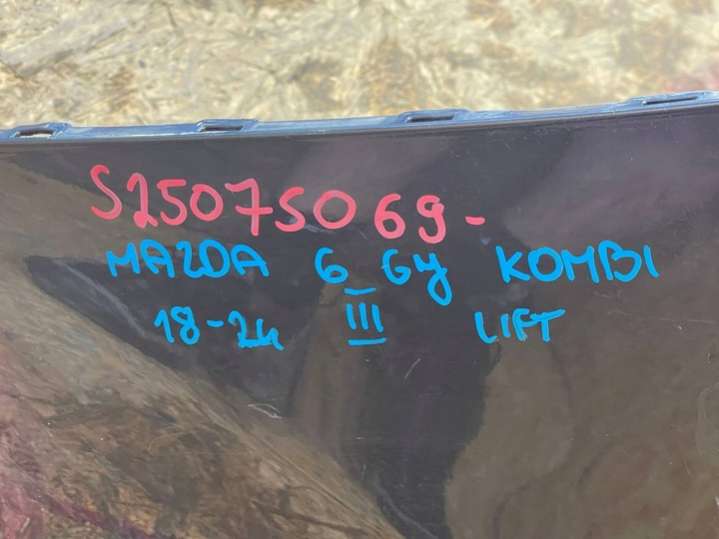 S25075069-
MAZDA 6 Gy KOMBI
18-24 III LIFT